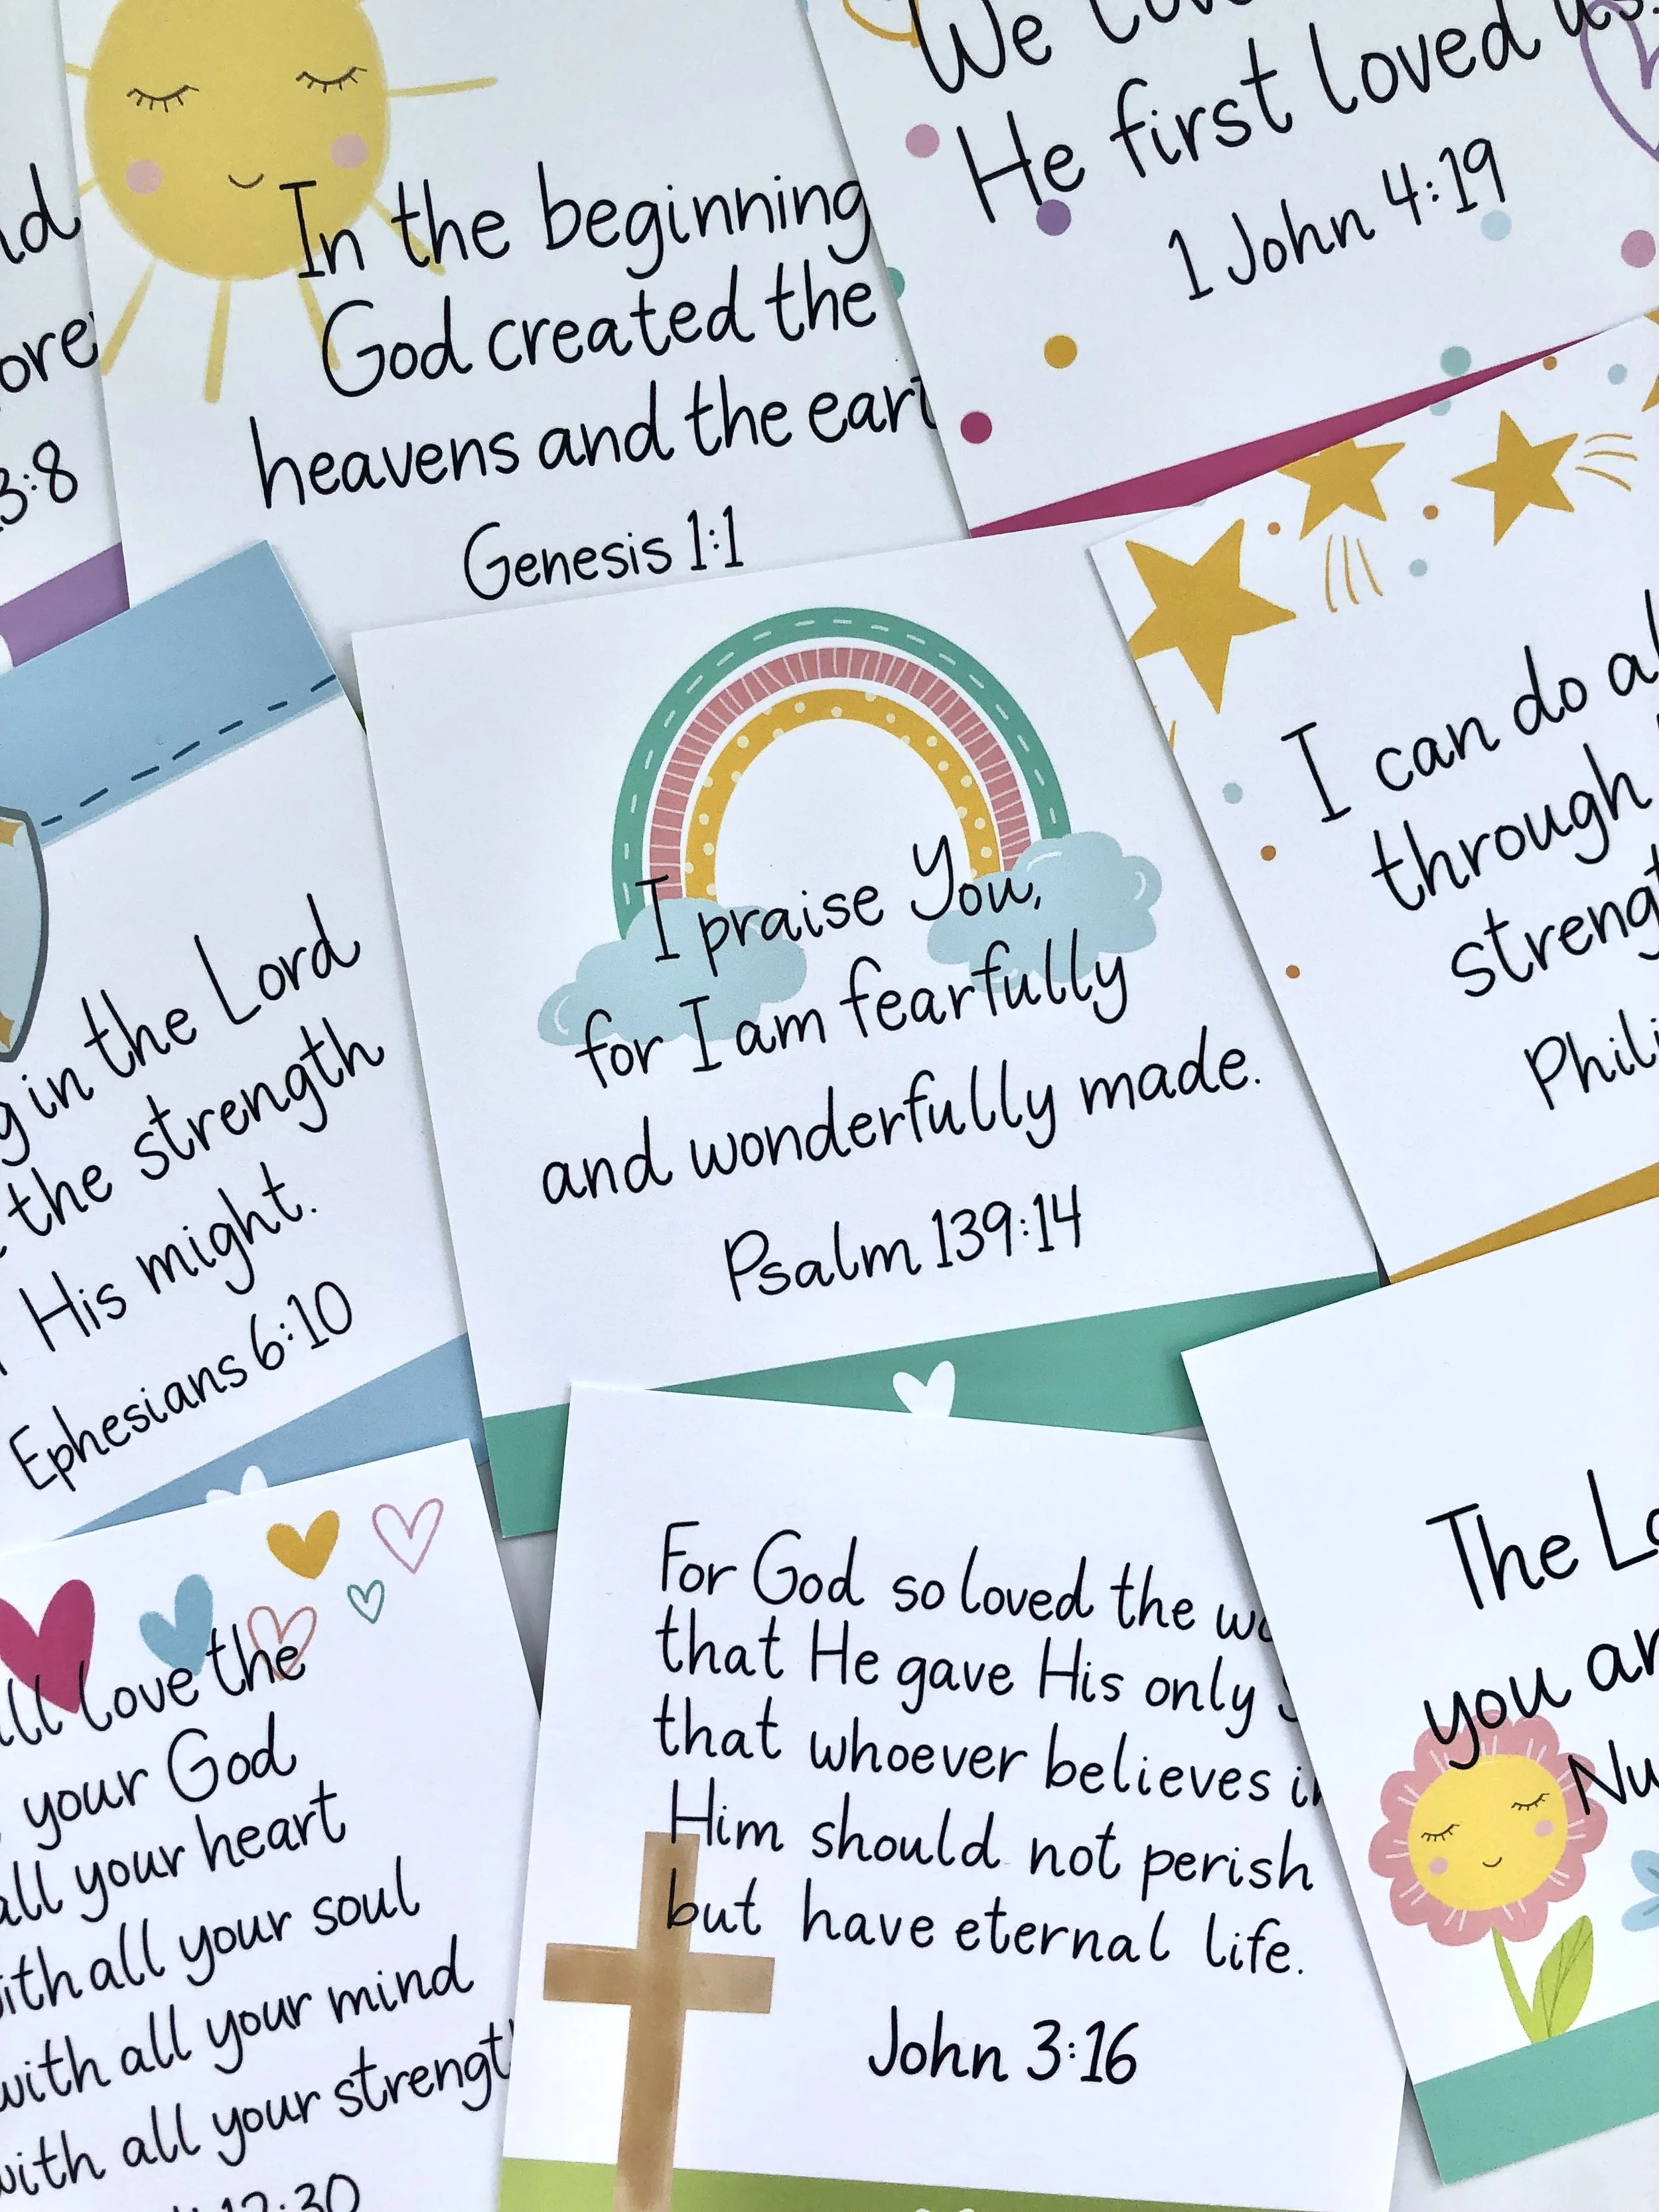 In the beginning
God created the
heavens and the
Genesis 1:1
We
He first loved us.
1 John 4:19
3:8
in the Lord
the strength
His might.
Ephesians 6:10
I praise You,
for I am fearfully
and wonderfully made.
Psalm 139:14
I can do
through
love the
your God
all your heart
all your soul
with all your mind
with all your
12:30
For God so loved the
that He gave His only
that whoever believes
Him should not perish
but have eternal life.
John 3:16
The
you